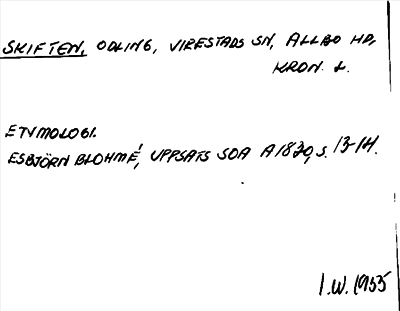 SKIFTEN, ODLING, VIRESTADS SN, ALLBO HD,
KRON. L.
ETYMOLOGI.
ESBJÖRN BLOHMÉ, UPPSATS SOA A1830, S. 13-14.
I.W. 1955